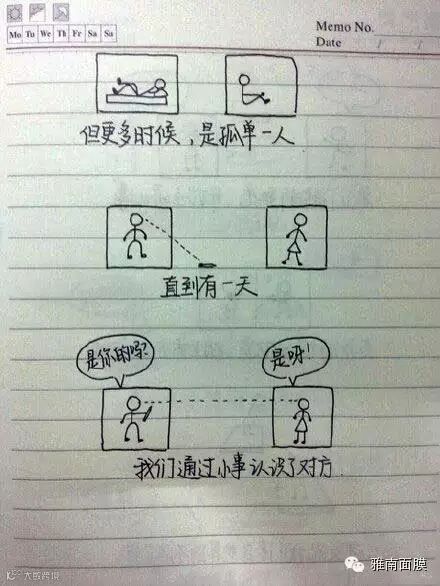 Memo No.
Mo Tu We Th Fr Sa Su
Date
但更多时候，是孤单一人
直到有一天
是你的吗?
是呀!
我们通过小事认识了对方.
大数跨境
雅南面膜